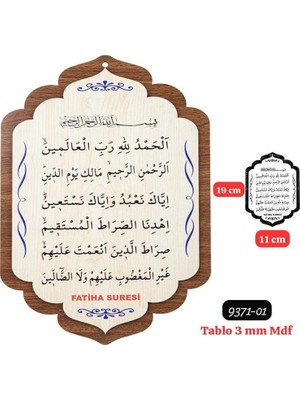 بِسْمِ اللّٰهِ الرَّحْمٰنِ الرَّحِيمِ
اَلْحَمْدُ لِلّٰهِ رَبِّ الْعَالَمِينَۙ
اَلرَّحْمٰنِ الرَّحِيمِۙ مَالِكِ يَوْمِ الدِّينِ
اِيَّاكَ نَعْبُدُ وَاِيَّاكَ نَسْتَعِينُۙ
اِهْدِنَا الصِّرَاطَ الْمُسْتَقِيمَۙ
صِرَاطَ الَّذِينَ اَنْعَمْتَ عَلَيْهِمْۙ
غَيْرِ الْمَغْضُوبِ عَلَيْهِمْ وَلَا الضَّالِّينَ
FATİHA SURESİ
19 cm
11 cm
9371-01
Tablo 3 mm Mdf